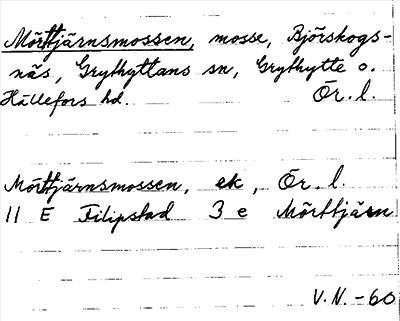 Mörttjärnsmossen, mosse, Björskogs-
näs, Grythyttans sn, Grythytte o.
Hällefors hd. Ör. l.
Mörttjärnsmossen, ek, Ör. l.
11 E Filipstad 3 e Mörttjärn
V.N. -60